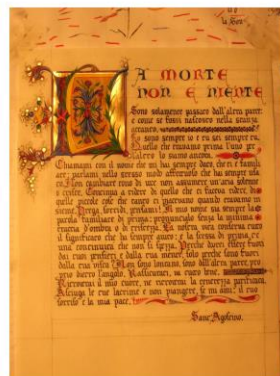 la Ser
A MORTE
NON E NIENTE
Sono solamente passato dall'altra parte:
è come se fossi nascosto nella stanza
accanto.
Io sono sempre io e tu sei sempre tu.
Quello che eravamo prima l'uno per
l'altro lo siamo ancora.
Chiamami con il nome che mi hai sempre dato, che ti è famili
are; parlami nello stesso modo affettuoso che hai sempre usa
to. Non cambiare tono di voce, non assumere un'aria solenne
o triste. Continua a ridere di quello che ci faceva ridere, di
quelle piccole cose che tanto ci piacevano quando eravamo in
sieme. Prega, sorridi, pensami! Il mio nome sia sempre la
parola familiare di prima: pronuncialo senza la minima
traccia d'ombra o di tristezza. La nostra vita conserva tutto
il significato che ha sempre avuto: è la stessa di prima, c'è
una continuità che non si spezza. Perchè dovrei essere fuori
dai tuoi pensieri e dalla tua mente, solo perchè sono fuori
dalla tua vista? Non sono lontano, sono dall'altra parte, pro
prio dietro l'angolo. Rassicurati, va tutto bene.
Ritroverai il mio cuore, ne ritroverai la tenerezza purificata.
Asciuga le tue lacrime e non piangere, se mi ami: il tuo
sorriso è la mia pace.
Sant'Agostino.